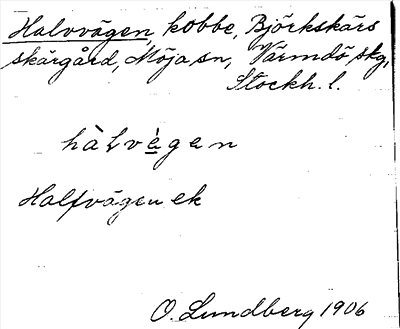 Halvvägen, kobbe, Björkskärs
skärgård, Möja sn, Värmdö skg,
Stockh. l.
hàlvègen
Halfvägen ek
O. Lundberg 1906